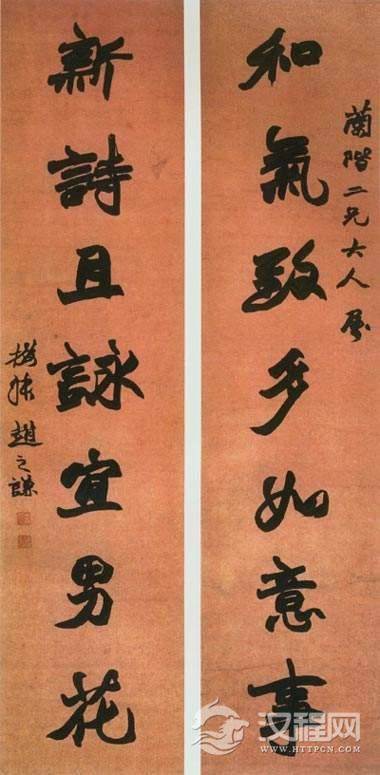 蘭階二兄大人屬
和氣致多如意事
新詩且詠宜男花
撝叔趙之謙
汉程网
HTTP://WWW.HTTPCN.COM